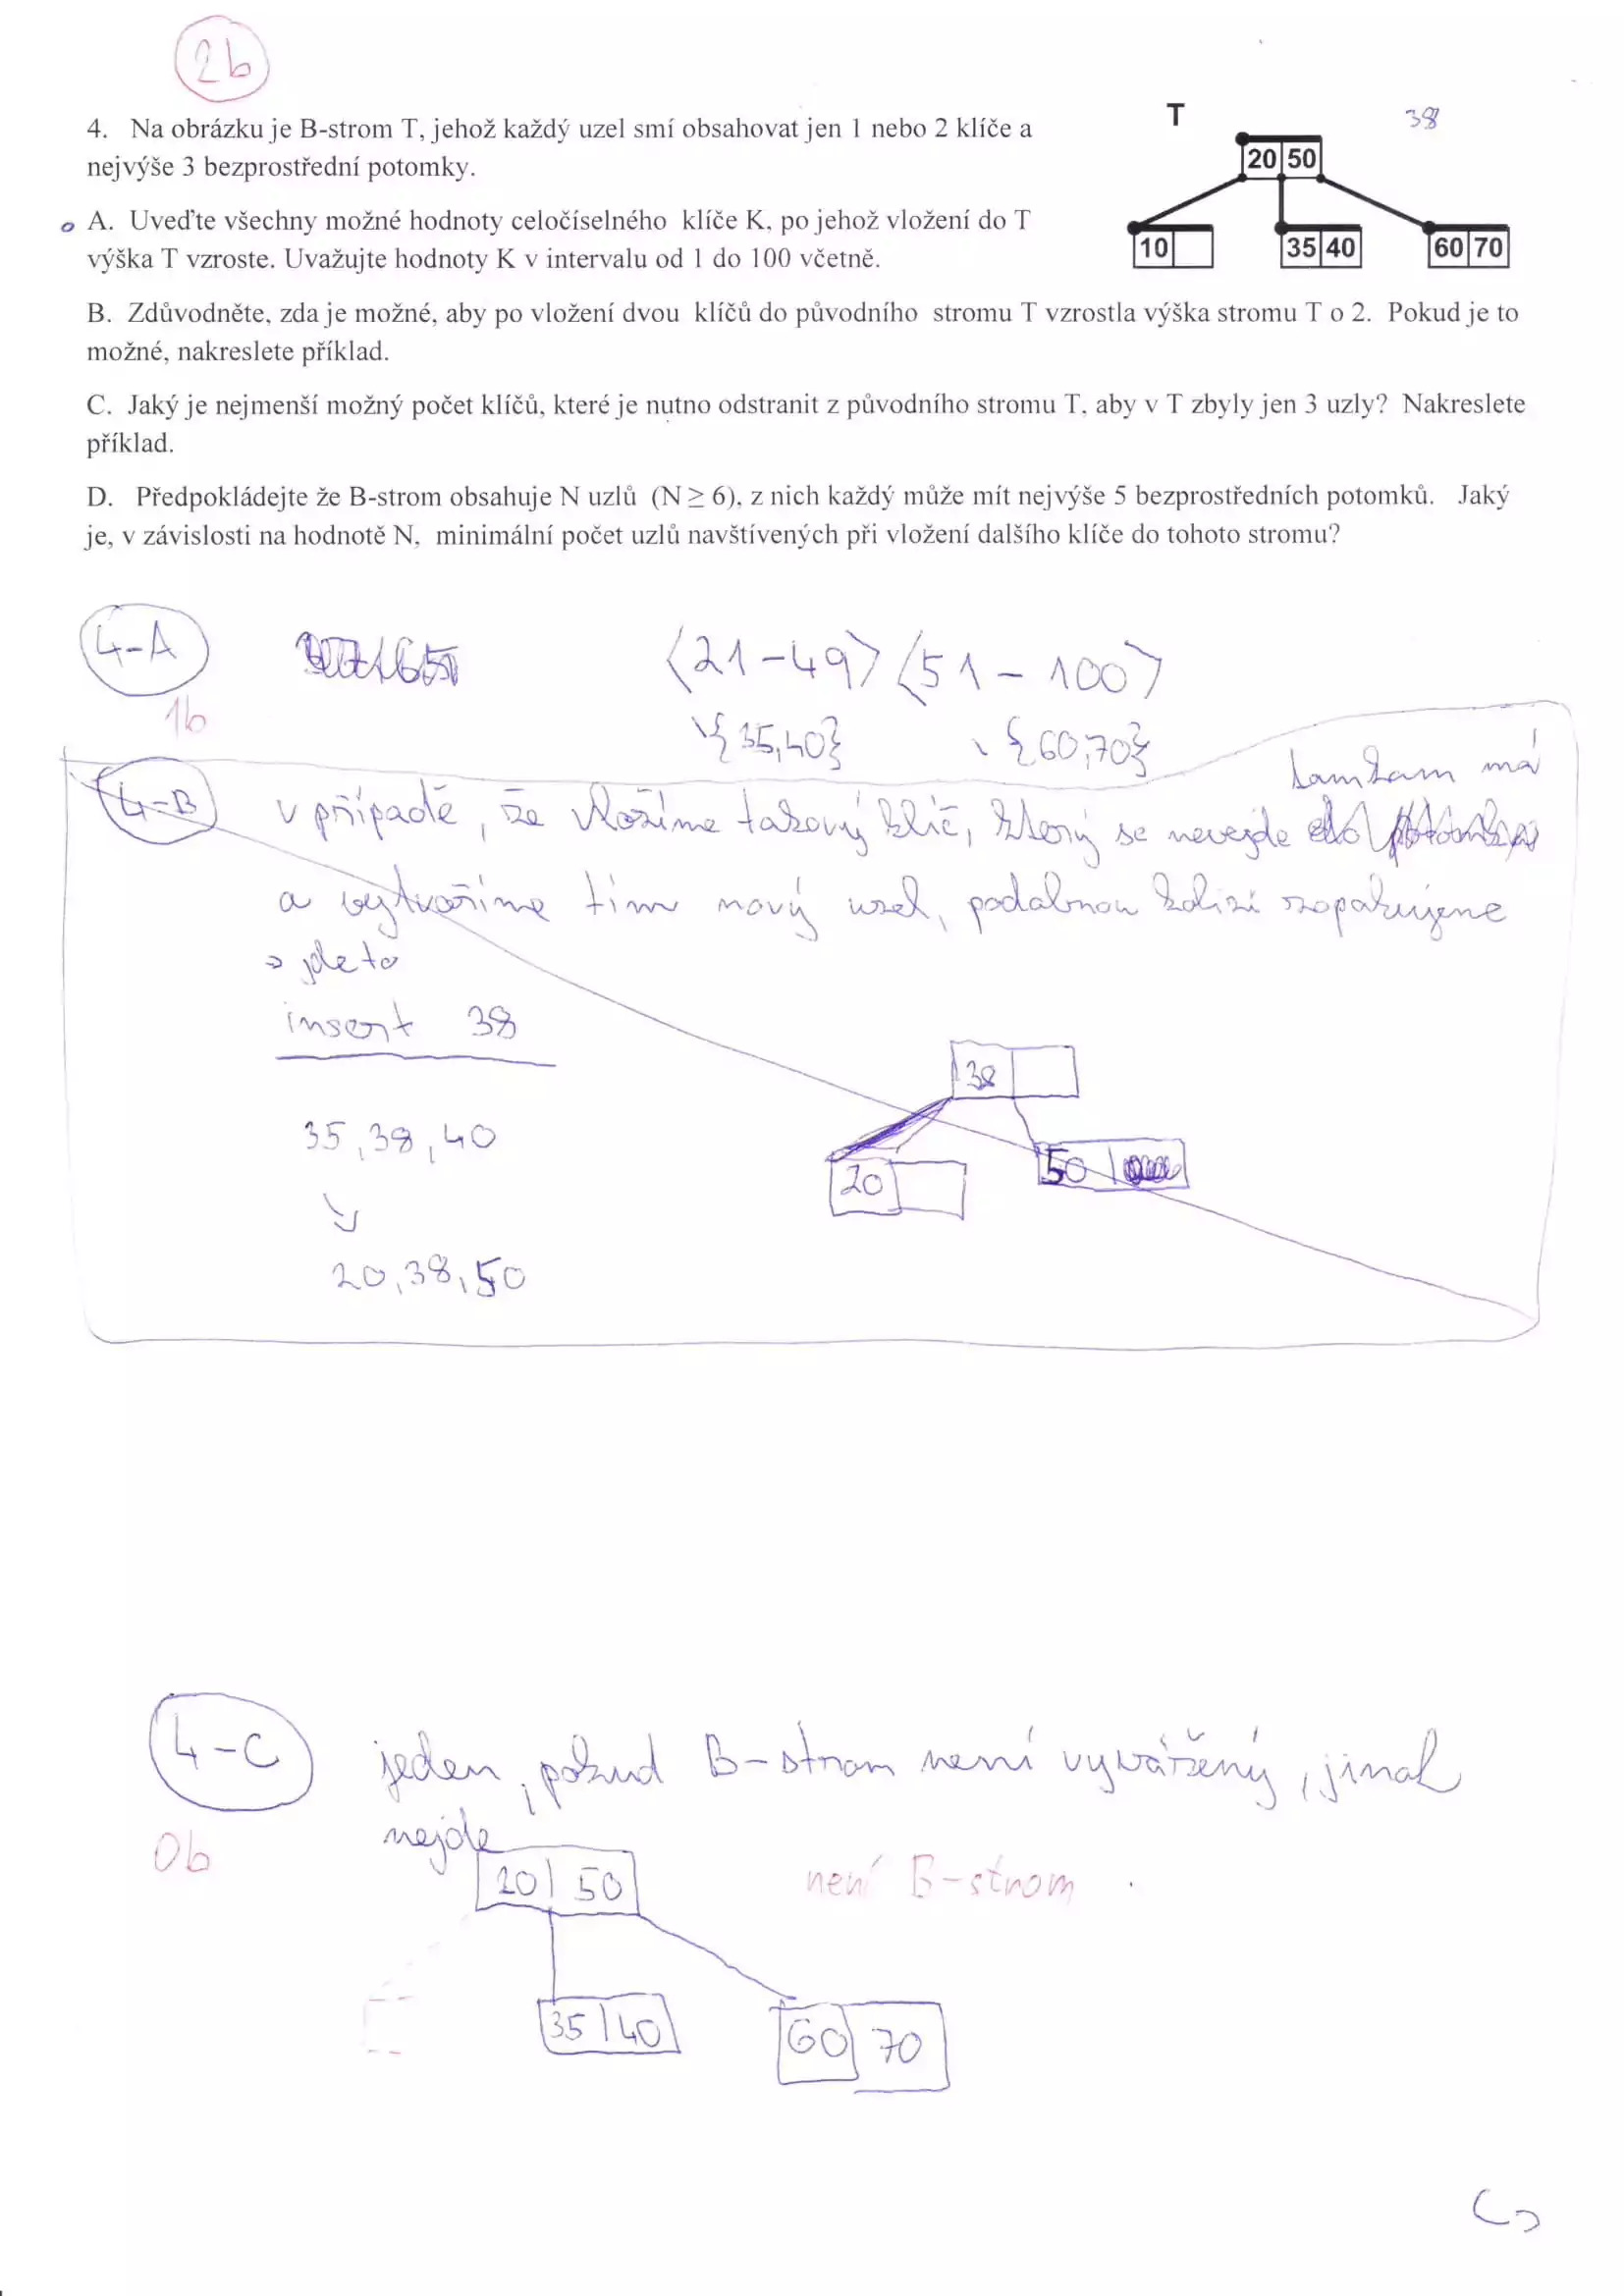 2b
4. Na obrázku je B-strom T, jehož každý uzel smí obsahovat jen 1 nebo 2 klíče a
nejvýše 3 bezprostřední potomky.
T
38
20 50
10
35 40
60 70
A. Uveďte všechny možné hodnoty celočíselného klíče K, po jehož vložení do T
výška T vzroste. Uvažujte hodnoty K v intervalu od 1 do 100 včetně.
B. Zdůvodněte, zda je možné, aby po vložení dvou klíčů do původního stromu T vzrostla výška stromu T o 2. Pokud je to
možné, nakreslete příklad.
C. Jaký je nejmenší možný počet klíčů, které je nutno odstranit z původního stromu T, aby v T zbyly jen 3 uzly? Nakreslete
příklad.
D. Předpokládejte že B-strom obsahuje N uzlů (N ≥ 6), z nich každý může mít nejvýše 5 bezprostředních potomků. Jaký
je, v závislosti na hodnotě N, minimální počet uzlů navštívených při vložení dalšího klíče do tohoto stromu?
4-A
⟨21-49⟩ ⟨51-100⟩
1b
\{35,40} \{60,70}
kam má
4-B
v případě, že vložíme takový klíč, který se nevejde
a vytvoříme tím nový uzel, podobnou kolizi zopakujeme
→ jde to
insert 38
38
35, 38, 40
20
50
20, 38, 50
4-C
jeden, pokud B-strom není vyvážený, jinak
nejde
0b
20 50
není B-strom
35 40
60 70